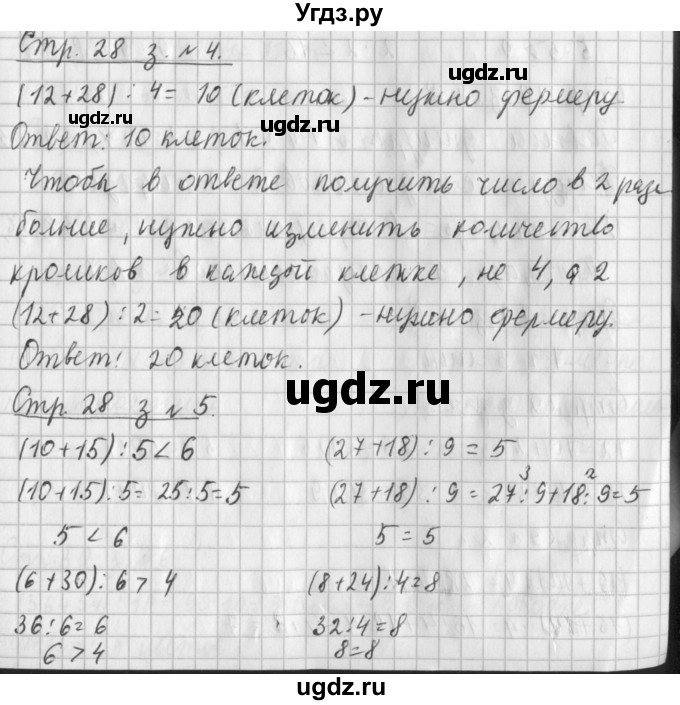 Угдз.ру
Стр. 28 з. №4.
ugdz.ru
(12+28) : 4 = 10 (клеток) - нужно фермеру
ugdz.ru
Ответ: 10 клеток.
Чтобы в ответе получить число в 2 раза
больше, нужно изменить количество
кроликов в каждой клетке, не 4, а 2
(12+28) : 2 = 20 (клеток) - нужно фермеру.
Ответ: 20 клеток.
ugdz.ru
Стр. 28 з №5.
(10+15) : 5 < 6 (27+18) : 9 = 5
(10+15) : 5 = 25 : 5 = 5 (27+18) : 9 = 27 : 9 + 18 : 9 = 5
3 2
ugdz.ru
5 < 6 5 = 5
(6+30) : 6 > 4 (8+24) : 4 = 8
36 : 6 = 6 32 : 4 = 8
6 > 4 8 = 8
ugdz.ru